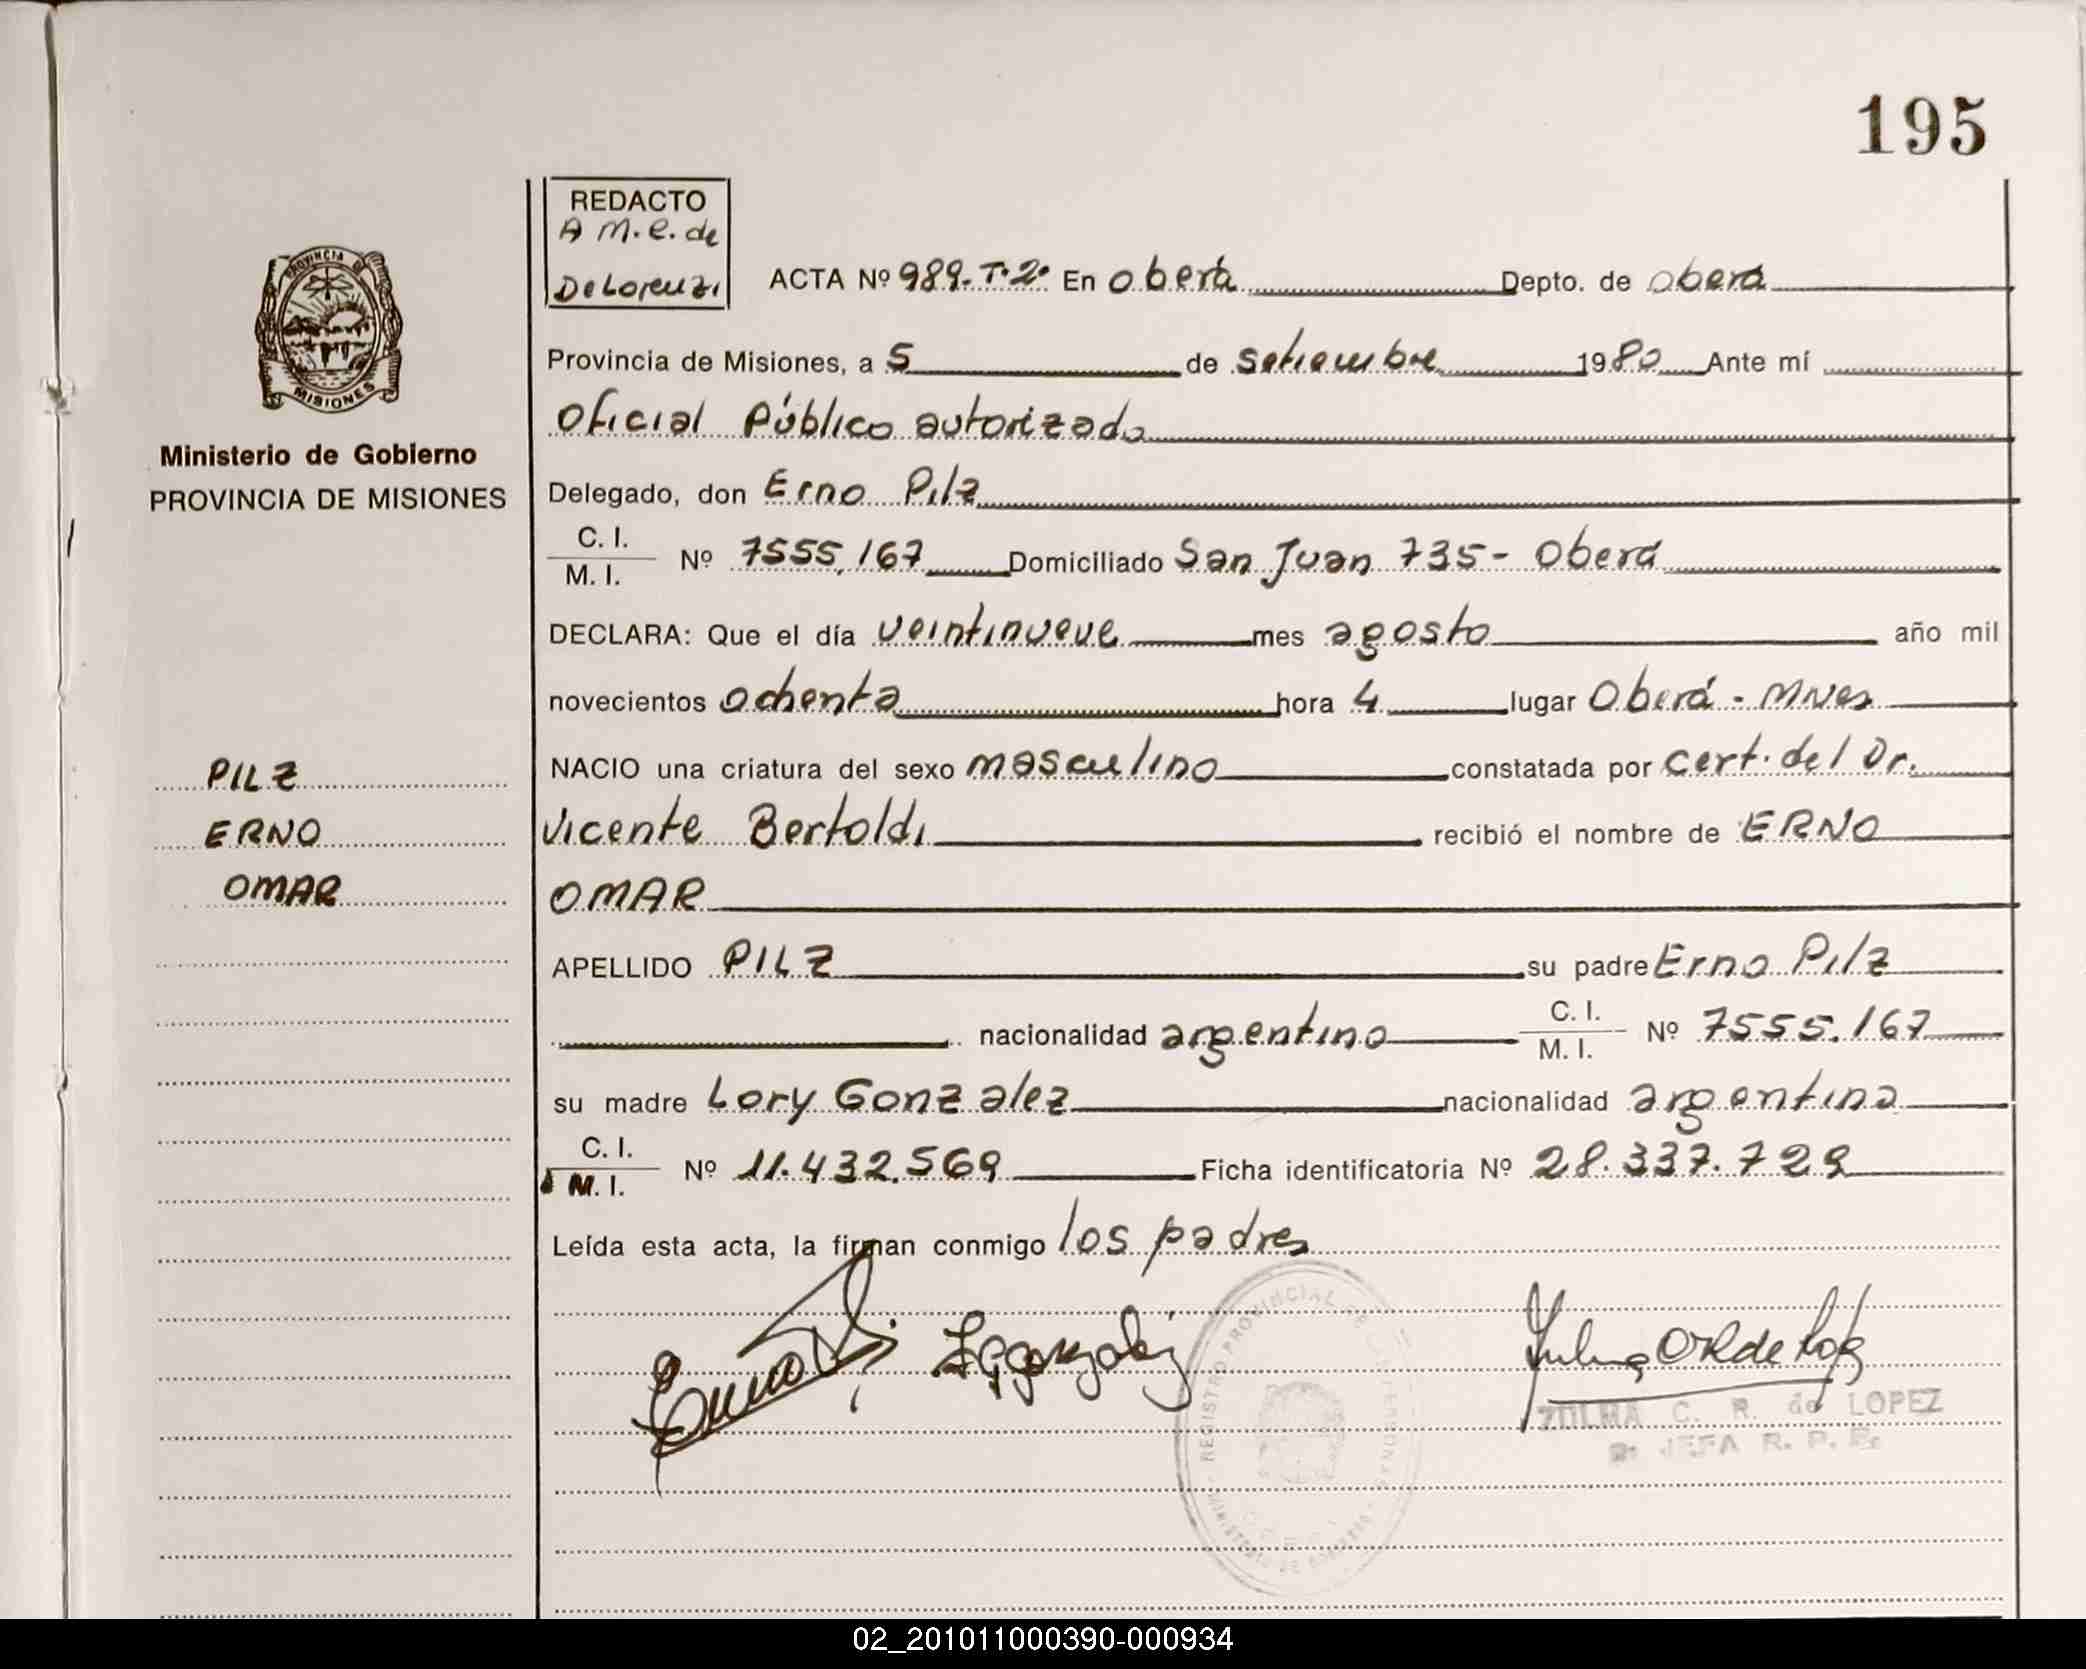 195
REDACTO
A M.E. de
DeLorenzi
ACTA Nº 989-T.2º En Oberá Depto. de Oberá
Provincia de Misiones, a 5 de setiembre 1980 Ante mí
Oficial Público autorizado
Ministerio de Gobierno
PROVINCIA DE MISIONES
PROVINCIA DE
MISIONES
Delegado, don Erno Pilz
C. I.
M. I. Nº 7555.167 Domiciliado San Juan 735 - Oberá
DECLARA: Que el día veintinueve mes agosto año mil
novecientos ochenta hora 4 lugar Oberá - Mnes
PILZ
ERNO
OMAR
NACIO una criatura del sexo masculino constatada por cert. del Dr.
Vicente Bertoldi recibió el nombre de ERNO
OMAR
APELLIDO PILZ su padre Erno Pilz
nacionalidad argentino C. I. M. I. Nº 7555.167
su madre Lory Gonzalez nacionalidad argentina
C. I.
M. I. Nº 11.432.569 Ficha identificatoria Nº 28.337.729
Leída esta acta, la firman conmigo los padres
REGISTRO PROVINCIAL DE LAS PERSONAS
MINISTERIO DE GOBIERNO
ZULMA C. R. de LOPEZ
JEFA R. P. P.
02_201011000390-000934